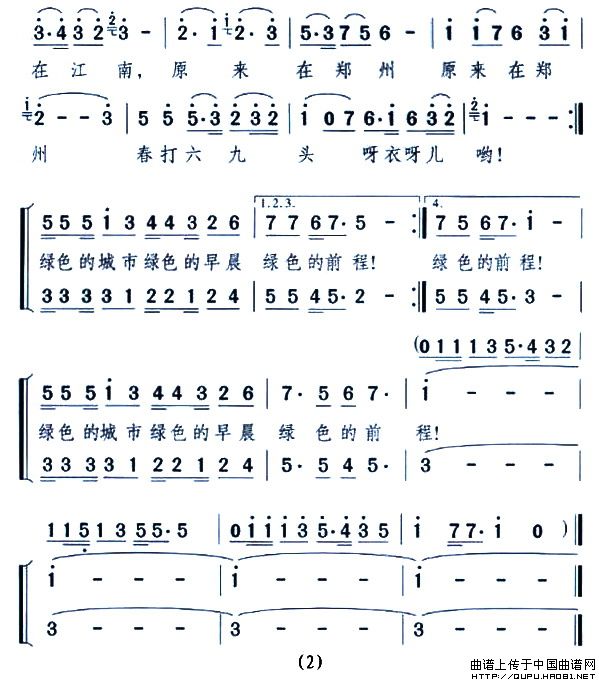 3·4 3 2 3 - | 2· i 2· 3 | 5·3 7 5 6 - | i i 7 6 3 i |
在江南,原来在郑州原来在郑
2 - - 3 | 5 5 5·3 2 3 2 | i 0 7 6·i 6 3 2 | i - - :‖
州 春打六九头 呀衣呀儿哟!
1.2.3. 4.
5 5 5 i 3 4 4 3 2 6 | 7 7 6 7· 5 - :‖ 7 5 6 7· i - |
绿色的城市绿色的早晨 绿色的前程! 绿色的前程!
3 3 3 3 1 2 2 1 2 4 | 5 5 4 5· 2 - :‖ 5 5 4 5· 3 - |
(0 1 1 1 3 5·4 3 2
5 5 5 i 3 4 4 3 2 6 | 7· 5 6 7· | i - - - |
绿色的城市绿色的早晨 绿色的前程!
3 3 3 3 1 2 2 1 2 4 | 5· 5 4 5· | 3 - - - |
1 1 5 1 3 5 5· 5 | 0 i i i 3 5·4 3 5 | i 7 7· i 0 )‖
i - - - | i - - - | i - - - ‖
3 - - - | 3 - - - | 3 - - - ‖
(2)
曲谱上传于中国曲谱网
HTTP://QUPU.HAO81.NET